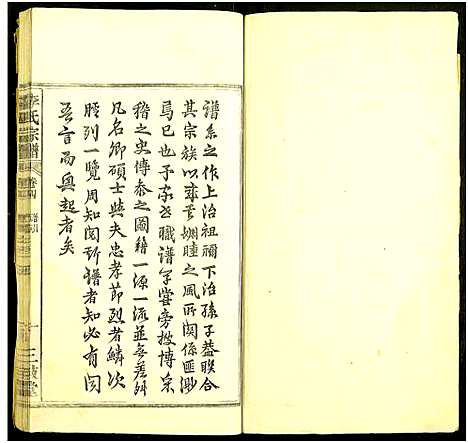 譜系之作上治祖禰下治孫子蓋聯合
其宗族以成雍睦之風所関係匪渺
焉已也予家世職譜學嘗旁搜博采
稽之史傳泰之圖籍一源一流並無差舛
凡名卿碩士與夫忠孝節烈者鱗次
臚列一覽周知閱斯譜者知必有聞
吾言而興起者矣
李氏宗譜
卷四
三
堂